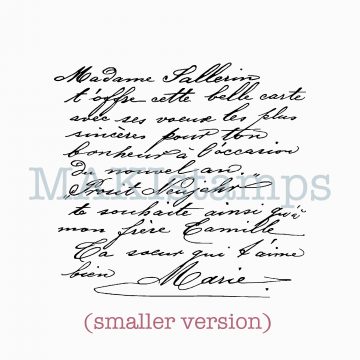 Madame Sallerin
t'offre cette belle carte
avec ses voeux les plus
sincères pour ton
bonheur à l'occasion
du nouvel an.
MAKIstamps
"Prosit Neujahr"
te souhaite ainsi qu'à
mon frère Camille
Ta soeur qui t'aime
bien Marie.
(smaller version)